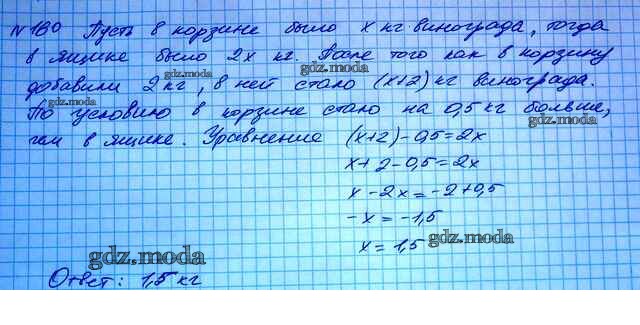 №160 Пусть в корзине было x кг винограда, тогда
в ящике было 2x кг. После того как в корзину
добавили 2 кг, в ней стало (x+2) кг винограда.
По условию в корзине стало на 0,5 кг больше,
чем в ящике. Уравнение (x+2)-0,5=2x
x+2-0,5=2x
x-2x=-2+0,5
-x=-1,5
x=1,5
Ответ: 1,5 кг
gdz.moda
gdz.moda
gdz.moda
gdz.moda
gdz.moda
gdz.moda